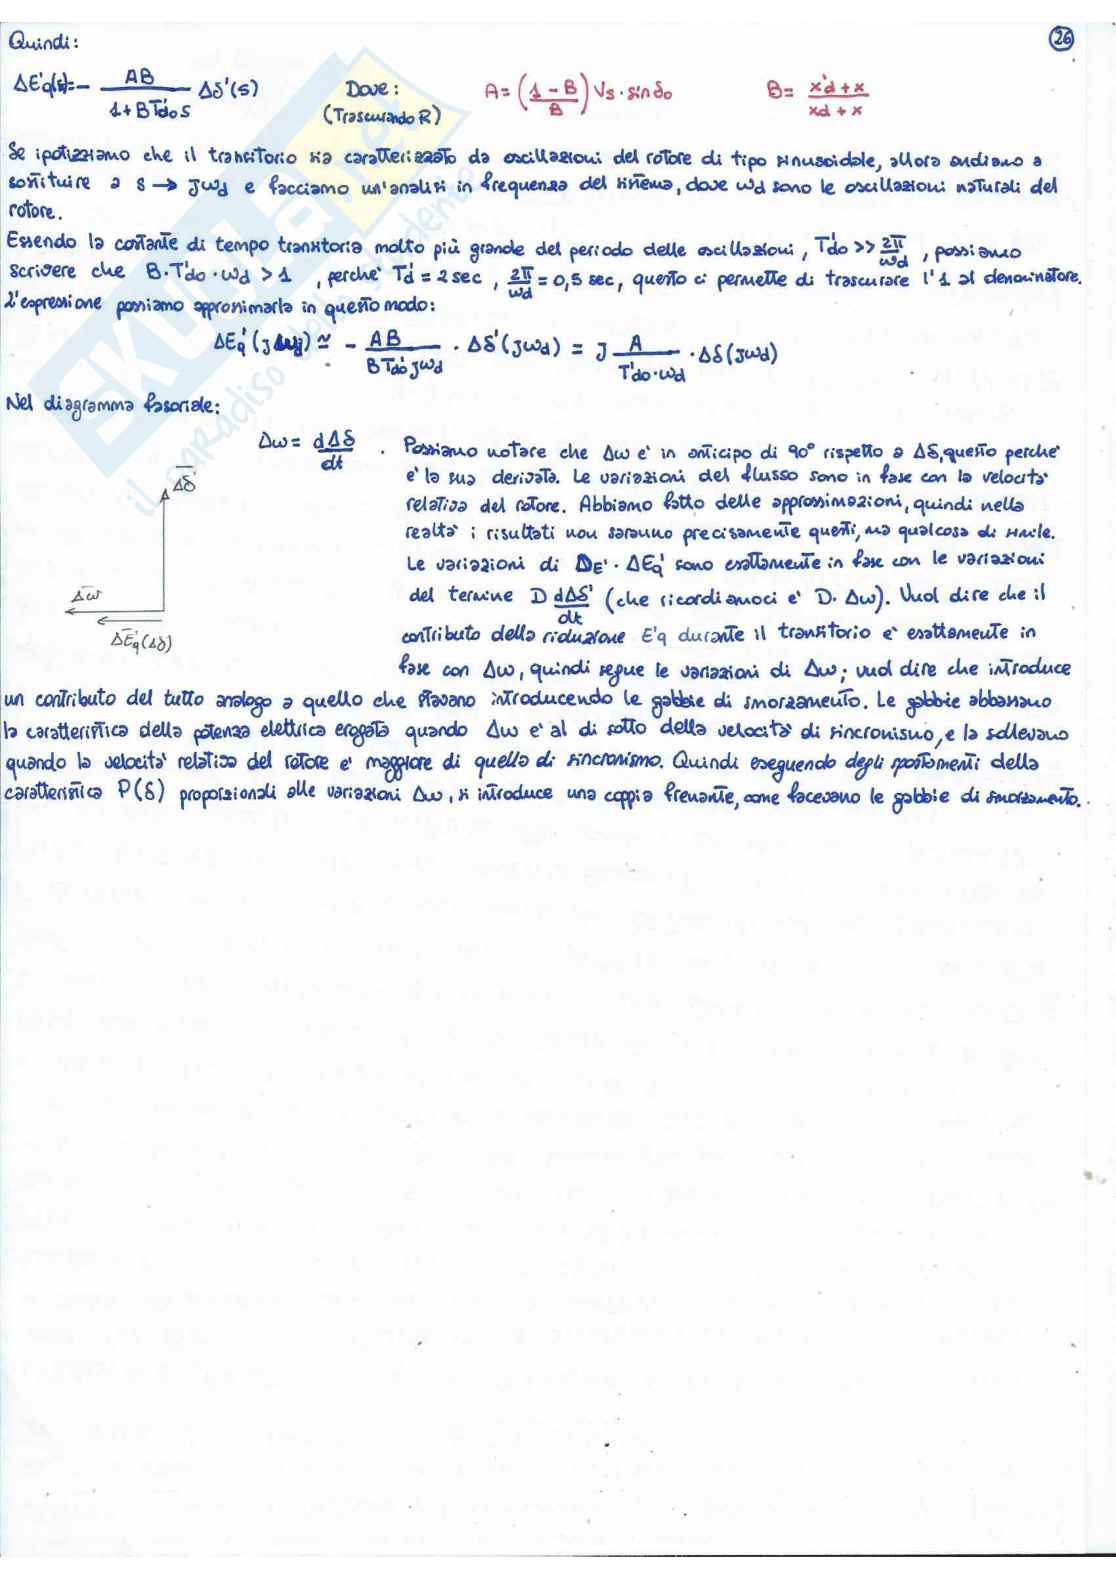 26
Quindi:
ΔE'q(s)=- AB/(1+BT'do s) Δδ'(s)   Dove: (Trascurando R)   A=((1-B)/B) Vs·sinδo   B= (x'd+x)/(xd+x)
Se ipotizziamo che il transitorio sia caratterizzato da oscillazioni del rotore di tipo sinusoidale, allora andiamo a
sostituire a s → jωd e facciamo un'analisi in frequenza del sistema, dove ωd sono le oscillazioni naturali del
rotore.
Essendo la costante di tempo transitoria molto più grande del periodo delle oscillazioni, T'do >> 2π/ωd, possiamo
scrivere che B·T'do·ωd > 1, perche' T'd = 2 sec, 2π/ωd = 0,5 sec, questo ci permette di trascurare l'1 al denominatore.
L'espressione possiamo approssimarla in questo modo:
ΔE'q(jωd) ≃ - AB/(B T'do jωd) · Δδ'(jωd) = J A/(T'do·ωd) · Δδ(jωd)
Nel diagramma fasoriale:
Δω = dΔδ/dt . Possiamo notare che Δω e' in anticipo di 90° rispetto a Δδ, questo perche'
e' la sua derivata. Le variazioni del flusso sono in fase con la velocita'
relativa del rotore. Abbiamo fatto delle approssimazioni, quindi nella
realta' i risultati non saranno precisamente questi, ma qualcosa di simile.
Le variazioni di DE'·ΔE'q sono esattamente in fase con le variazioni
del termine D dΔδ'/dt (che ricordiamoci e' D·Δω). Vuol dire che il
contributo della riduzione E'q durante il transitorio e' esattamente in
fase con Δω, quindi segue le variazioni di Δω; vuol dire che introduce
Δδ'
Δω
ΔE'q(Δδ)
un contributo del tutto analogo a quello che stavano introducendo le gabbie di smorzamento. Le gabbie abbassano
la caratteristica della potenza elettrica erogata quando Δω e' al di sotto della velocita' di sincronismo, e la sollevano
quando la velocita' relativa del rotore e' maggiore di quella di sincronismo. Quindi eseguendo degli spostamenti della
caratteristica P(δ) proporzionali alle variazioni Δω, si introduce una coppia frenante, come facevano le gabbie di smorzamento.
SKUOLA.net
il paradiso dello studente